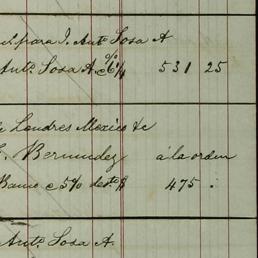 para J. Antº Sosa A
Antº Sosa A c% 531 25
Londres Mexico &c
Bermudez a la orden
Banco c 5% desto $ 475 .
Antº Sosa A.